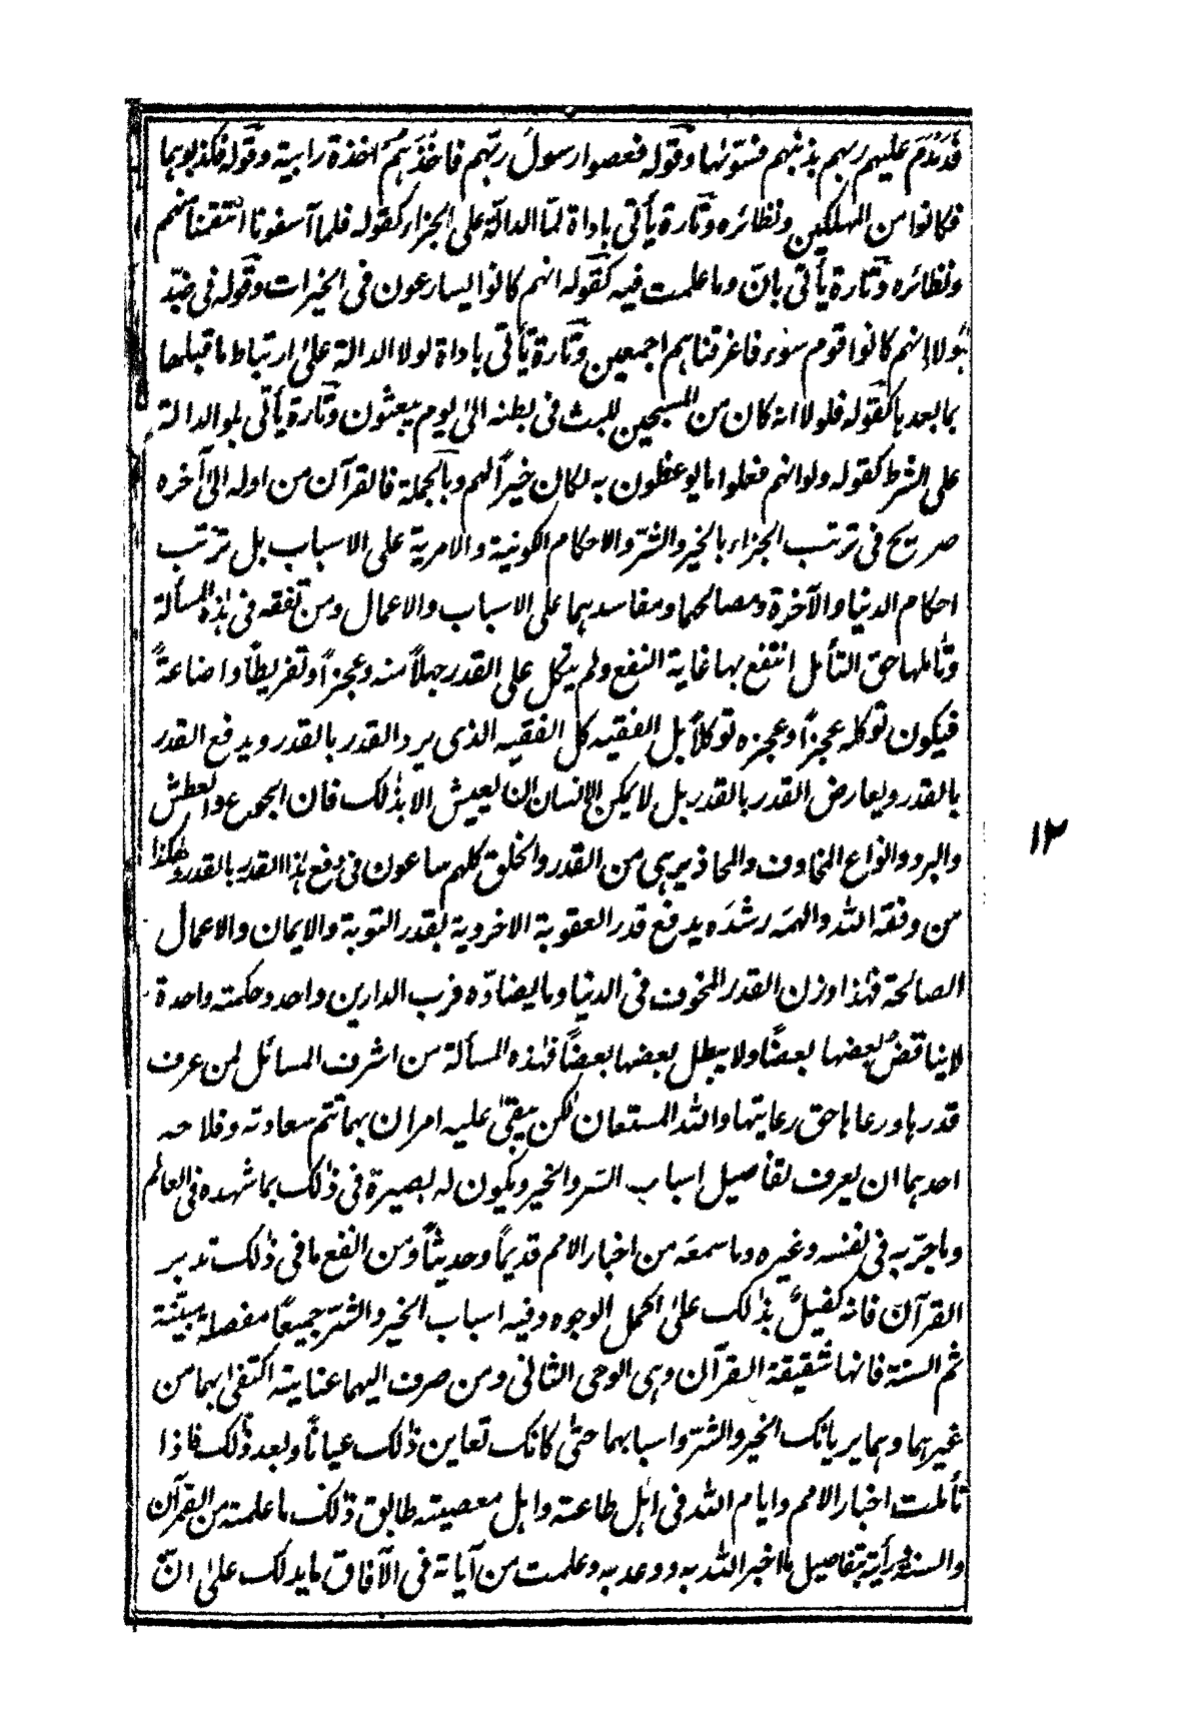 فَدَمْدَمَ عليهم ربهم بذنبهم فسوّٰىها وقوله فعصوا رسولَ ربّهم فاخَذَهم اخذة رابية وقوله فكذبوهما
فكانوا من المهلكين ونظائره وتارة يأتى باداة لمّا الدالّة على الجزاء كقوله فلما آسفونا انتقمنا منهم
ونظائره وتارة يأتى بانّ وما علمت فيه كقوله انهم كانوا يسارعون فى الخيرات وقوله فى ضدّ
هٰؤلاء انهم كانوا قوم سَوْء فاغرقناهم اجمعين وتارة يأتى باداة لولا الدالة على ارتباط ما قبلها
بما بعدها كقوله فلولا انه كان من المسبحين للبث فى بطنه الى يوم يبعثون وتارة يأتى بلو الدالة
على الشرط كقوله ولو انهم فعلوا ما يوعظون به لكان خيراً لهم وبالجملة فالقرآن من اوله الى آخره
صريح فى ترتب الجزاء بالخير والشرّ والاحكام الكونية والامرية على الاسباب بل ترتب
احكام الدنيا والآخرة ومصالحهما ومفاسدهما على الاسباب والاعمال ومن تفقه فى هذه المسألة
وتأملها حق التأمل انتفع بها غاية النفع ولم يتكل على القدر جهلاً منه وعجزاً وتفريطاً واضاعةً
فيكون توكله عجزاً وعجزه توكلاً بل الفقيه كل الفقيه الذى يرد القدر بالقدر ويدفع القدر
بالقدر ويعارض القدر بالقدر بل لا يمكن الانسان ان يعيش الا بذٰلك فان الجوع والعطش
والبرد وانواع المخاوف والمحاذير هى من القدر والخلق كلهم ساعون فى دفع هذا القدر بالقدر وهكذا
من وفقه الله والهمَه رشدَه يدفع قدر العقوبة الاخروية بقدر التوبة والايمان والاعمال
الصالحة فهٰذا وزن القدر المخوف فى الدنيا وما يضادّه فرب الدارين واحد وحكمته واحدة
لا يناقضُ بعضها بعضًا ولا يبطل بعضها بعضاً فهٰذه المسألة من اشرف المسائل لمن عرف
قدرها ورعاها حق رعايتها والله المستعان لكن يبقىٰ عليه امران بهما تتم سعادته وفلاحه
احدهما ان يعرف تفاصيل اسباب الشر والخير ويكون له بصيرة فى ذٰلك بما شهده فى العالم
وما جرّبه فى نفسه وغيره وما سمعَه من اخبار الامم قديماً وحديثاً ومن انفع ما فى ذٰلك تدبر
القرآن فانه كفيلٌ بذٰلك علىٰ اكمل الوجوه وفيه اسباب الخير والشرّ جميعاً مفصلة مبيّنة
ثم السنة فانها شقيقة القرآن وهى الوحى الثانى ومن صرف اليهما عنايته اكتفىٰ بهما من
غيرهما وهما يريانك الخير والشرّ واسبابهما حتىٰ كانك تعاين ذٰلك عياناً وبعد ذٰلك فاذا
تأملت اخبار الامم وايام الله فى اهل طاعته واهل معصيته طابق ذٰلك ما علمته من القرآن
والسنة ورأيته بتفاصيل ما اخبر الله به ووعد به وعلمت من آياته فى الآفاق ما يدلك علىٰ انّ
١٢